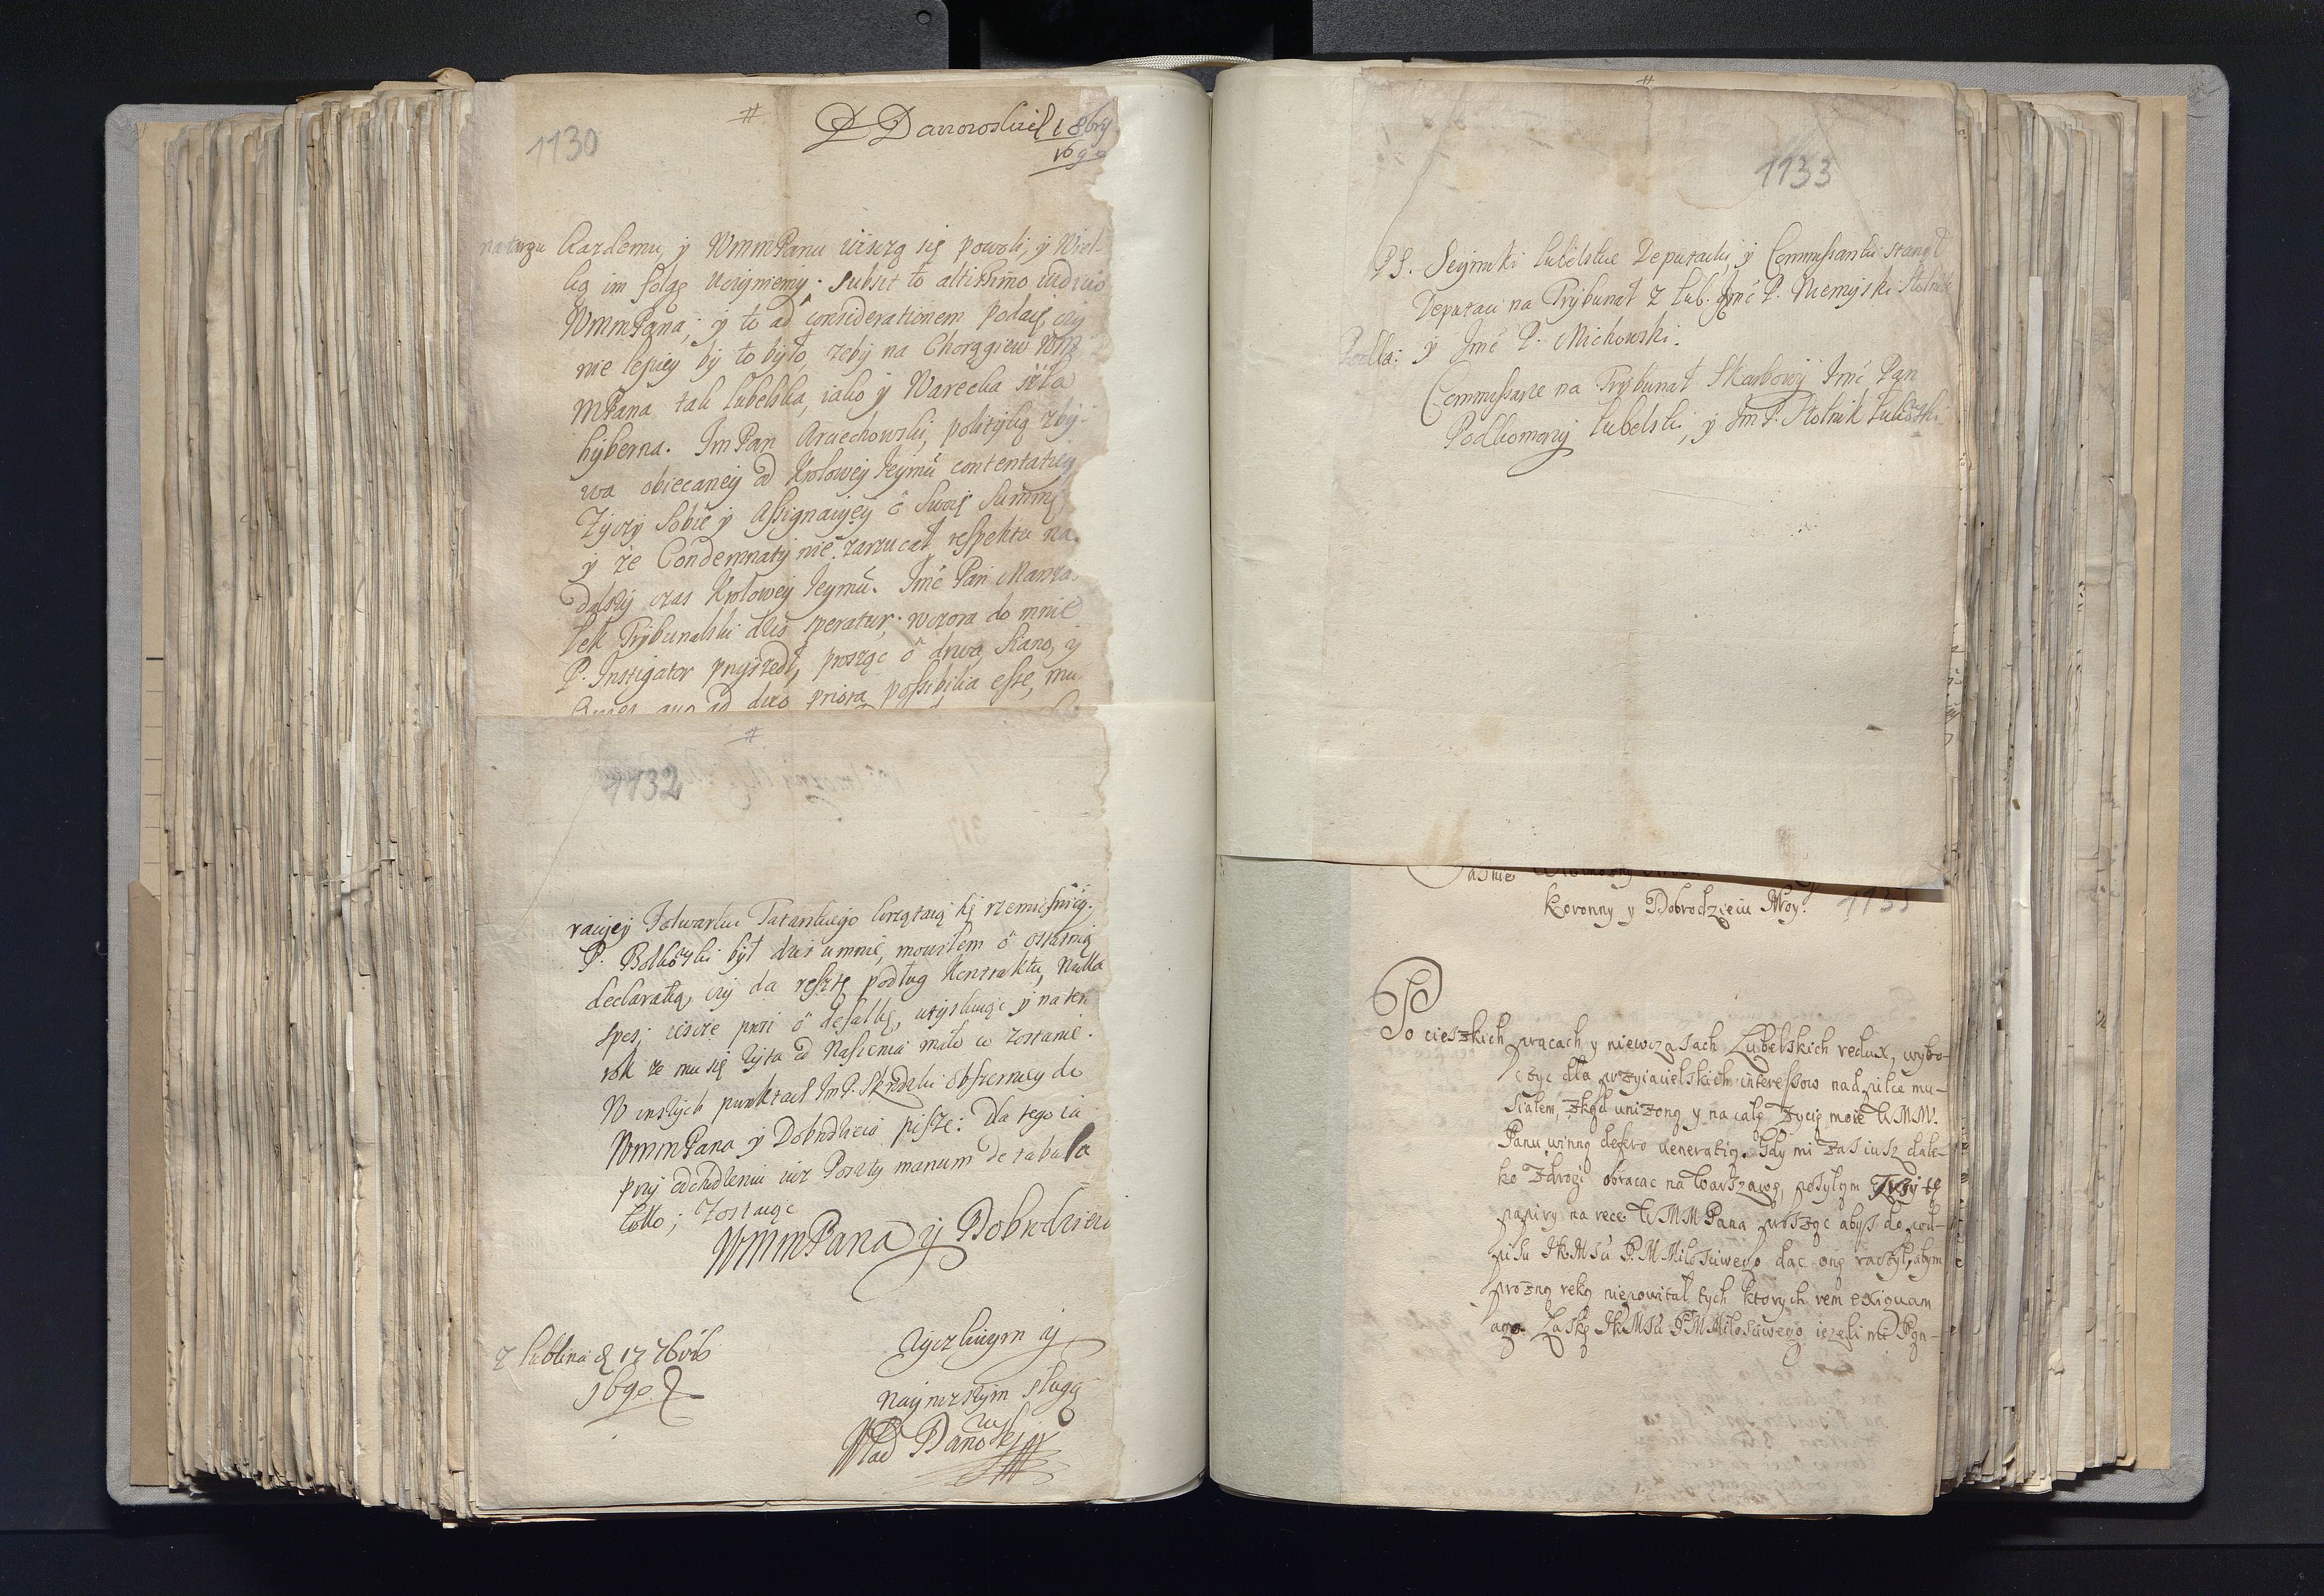 1130
#
P Danowski
1 8bry
169
każdemu, y WmmPanu uiszczą się powoli, y Wiel-
ką im folgę uczynięmy. Subsit to altissimo iudicio
WmmPana; y to ad considerationem podaię, czy
nie lepiey by to było, zeby na Chorągiew Wm
mPana tak Lubelska, iako y Warecka szła
hyberna. ImPan Arciechowski, polityką zby-
wa obiecaney od Krolowey Ieymci contentatiey
Zyczy sobie y Assignacyey o swoię Summę,
y że Condemnaty nie zarzucał, respektu na
dalszy czas Krolowey Ieymci. Imć Pan Marsza-
łek Trybunalski dziś speratur; wczora do mnie
P. Instigator przyszedł, prosząc o drwa, siano, y
ad duo priora possibilia esse, mu
#
1132
racyey Folwarku Tatarskiego krzątaią się rzemieśnicy.
P. Bolkowski był dziś u mnie, mowiłem o ostatnią
declaratią, czy da resztę podług Kontraktu, Nulla
spes; ieszcze prosi o defalkę, utyskuiąc y na ten
rok ze mu się żyta od Nasienia mało co zostanie.
W inszych punktach Im P. Skrodzki obszerniey do
WmmPana y Dobrodzieia pisze: dla tego ia
przy odchodzeniu iuz Poczty manum de tabula
tollo; Zostaiąc
WmmPana y Dobrodzieia
Życzliwym y
nayniższym sługą
Wład Danowski
z Lublina d 17 7bris
1690
#
1133
PS. Seymiki Lubelskie Deputackie, y Commissarskie stanęły
Deputaci na Trybunał z Lub. Jmć P. Niemyski Stolnik
Podla: y Jmć P. Michowski.
Commissarze na Trybunał Skarbowy Imć Pan
Podkomorzy Lubelski, y Im P. Stolnik Lubelski
Koronny y Dobrodzieiu Moy.
Po cieszkich pracach y niewczasach Lubelskich redux, wybo-
czyc dla przyiacielskich interessow nad pilce mu-
siałem, zkąd uniżoną y na całę życię moie WMM.
Panu winną defero ueneratią. Gdy mi zas iusz dale-
ko z drogi obracac na Warszawę, posyłam Trzy te
papiry na ręce WMMPana prosząc abyś do pod-
pisu JKMści P.M.Miłościwego dac one raczył, abym
prozną reką niepowitał tych ktorych rem exiguam
ago. Łaskę JKMści PMMiłosciwego iezeli mi Pan-